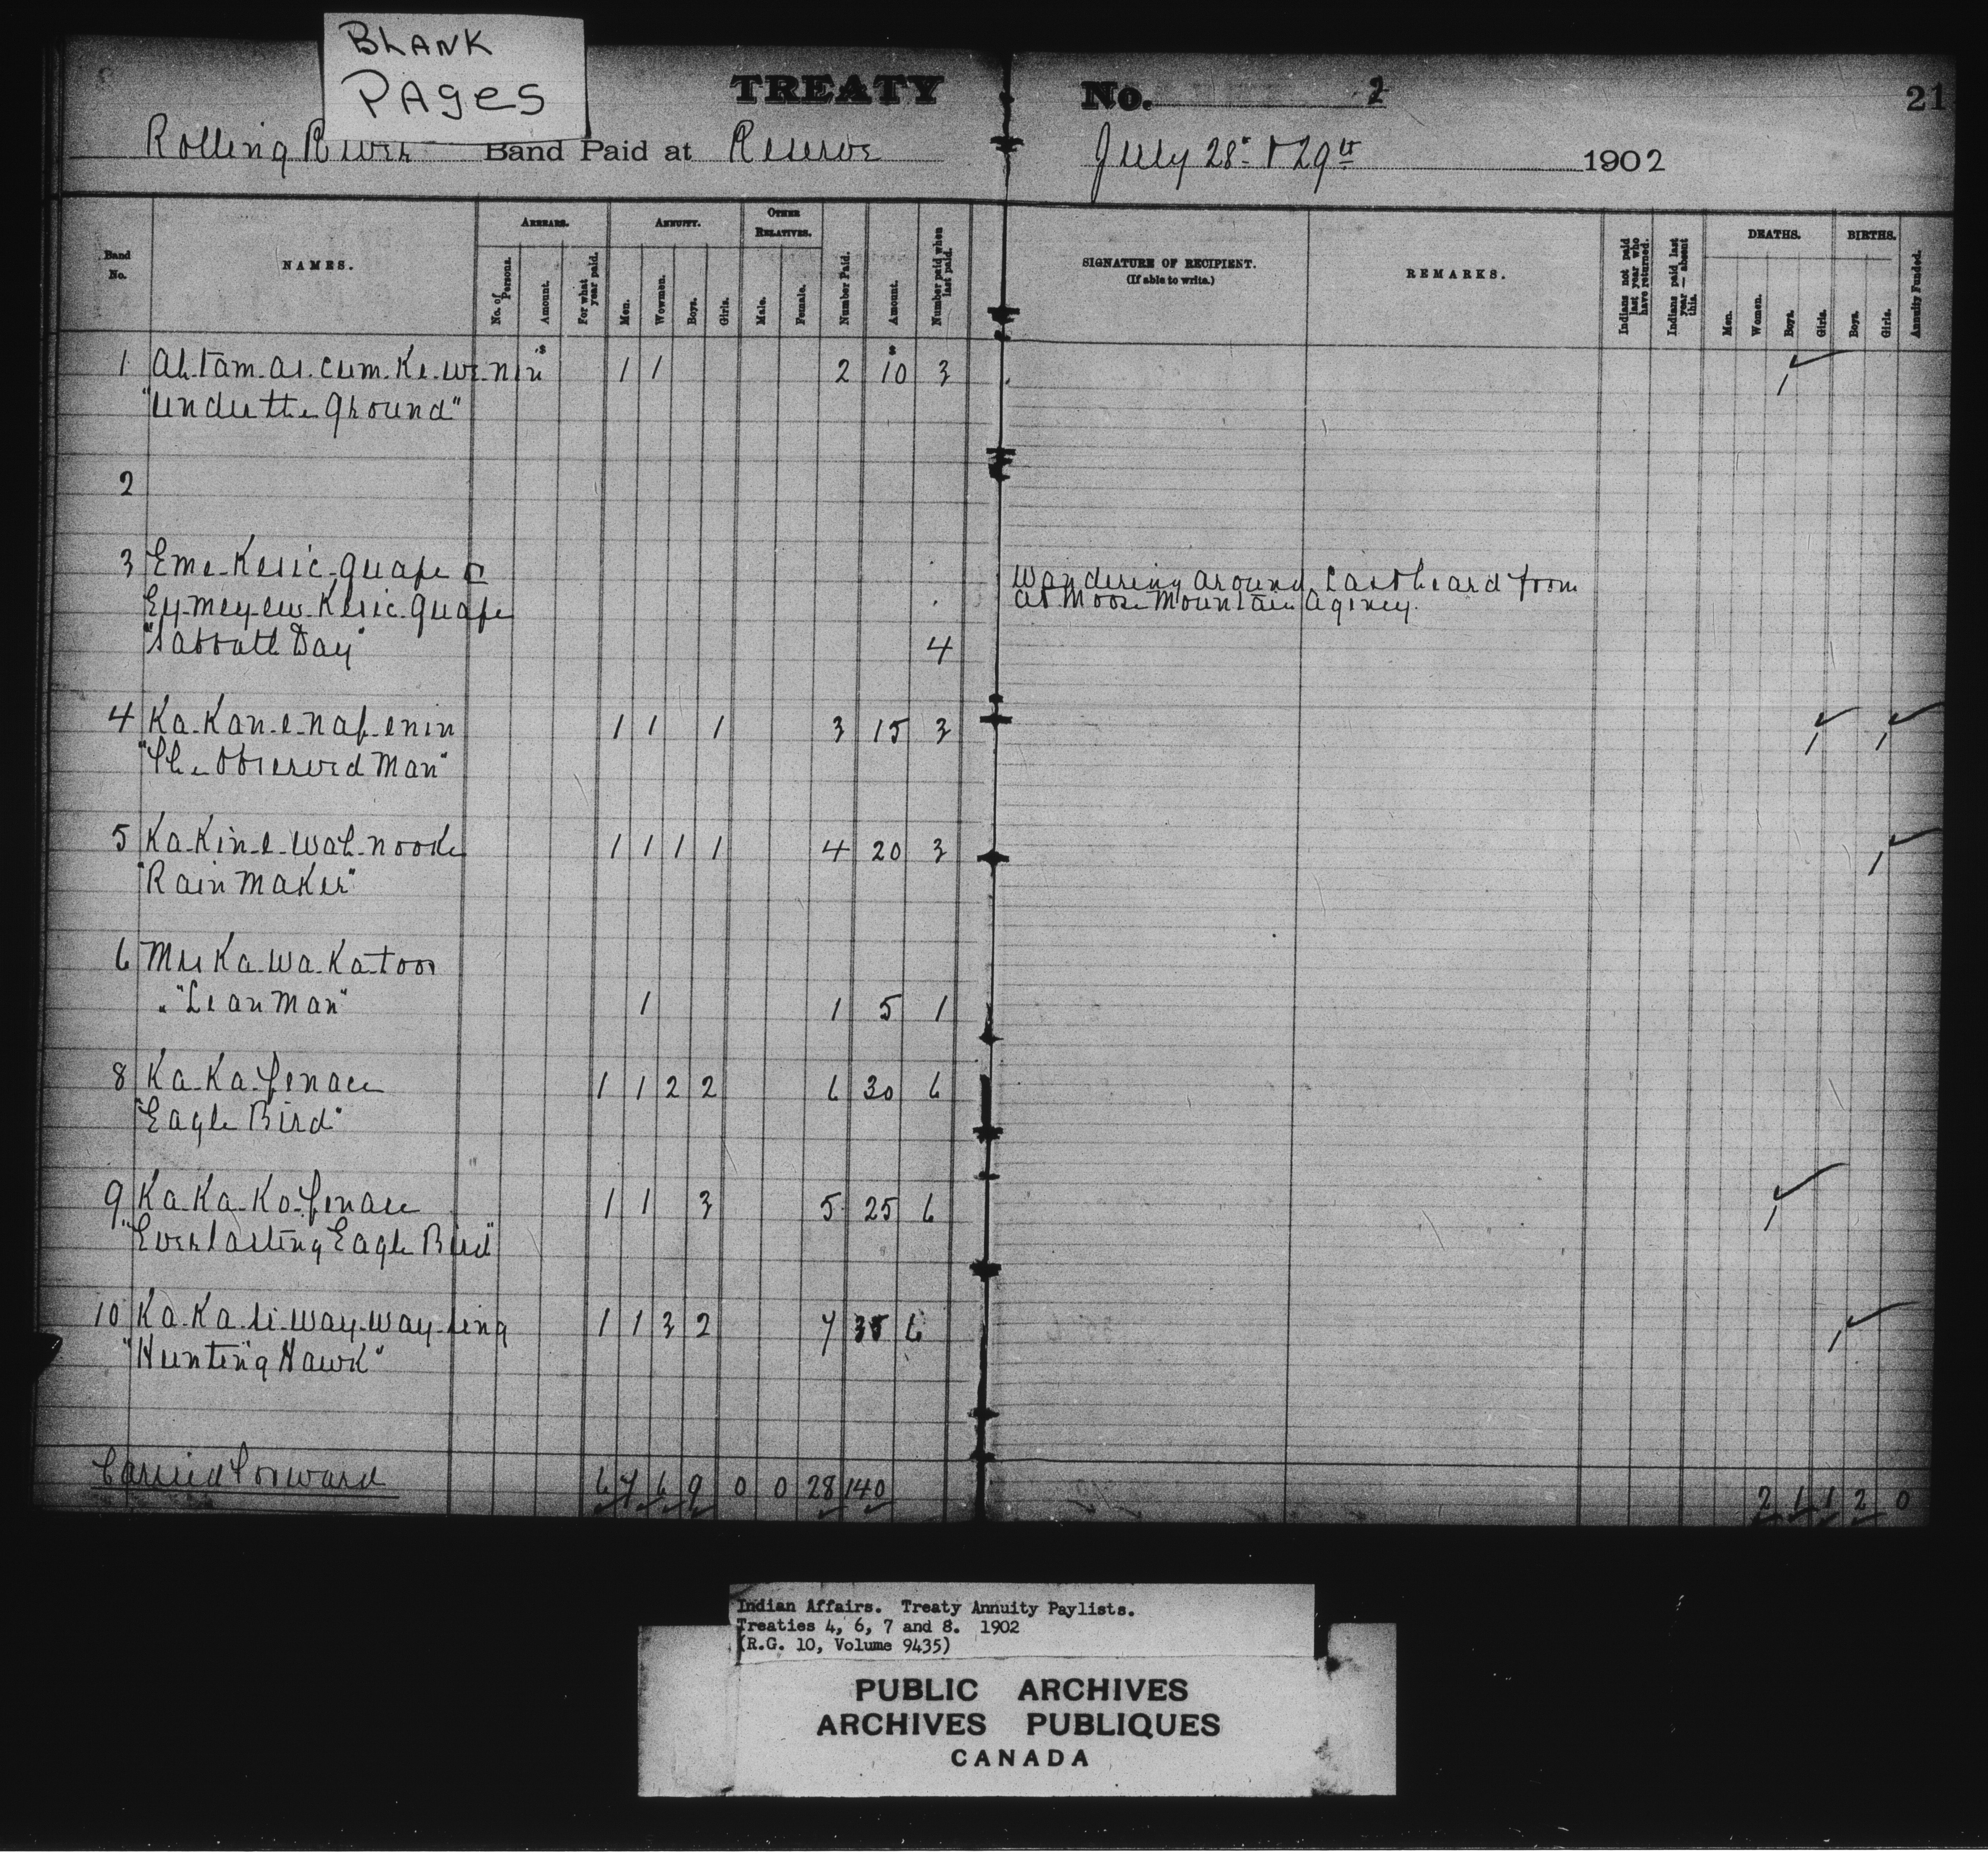 BLANK
PAges
TREATY No. 2 21
Rolling River Band Paid at Reserve July 28th & 29th 1902
Band No. NAMES. ARREARS. No. of Persons. Amount. For what year paid. ANNUITY. Men. Wowmen. Boys. Girls. OTHER RELATIVES. Male. Female. Number Paid. Amount. Number paid when last paid. SIGNATURE OF RECIPIENT. (If able to write.) REMARKS. Indians not paid last year who have returned. Indians paid last year — absent this. DEATHS. Men. Women. Boys. Girls. BIRTHS. Boys. Girls. Annuity Funded.
1 Ah-tam-as-cum-ke-we-nin $ 1 1 2 $10 3 1
"Under the Ground"
2
3 Eme-Kesic-quape or
Ey-mey-ew-Kesic-quape Wandering around, last heard from
"Sabbath Day" 4 at Moose Mountain Agency.
4 Ka-Kan-e-nap-enin 1 1 1 3 15 3 1 1
"The Observed Man"
5 Ka-Kin-e-wah-nooke 1 1 1 1 4 20 3 1
"Rain Maker"
6 Mus Ka-wa-Ka-toos
" "Lean Man" 1 1 5 1
8 Ka-Ka-penace 1 1 2 2 6 30 6
"Eagle Bird"
9 Ka-Ka-Ko-penace 1 1 3 5 25 6 1
"Everlasting Eagle Bird"
10 Ka-Ka-si-way-way-sing 1 1 3 2 7 35 6 1
"Hunting Hawk"
Carried Forward 6 7 6 9 0 0 28 140 2 1 1 2 0
Indian Affairs. Treaty Annuity Paylists.
Treaties 4, 6, 7 and 8. 1902
(R.G. 10, Volume 9435)
PUBLIC ARCHIVES
ARCHIVES PUBLIQUES
CANADA